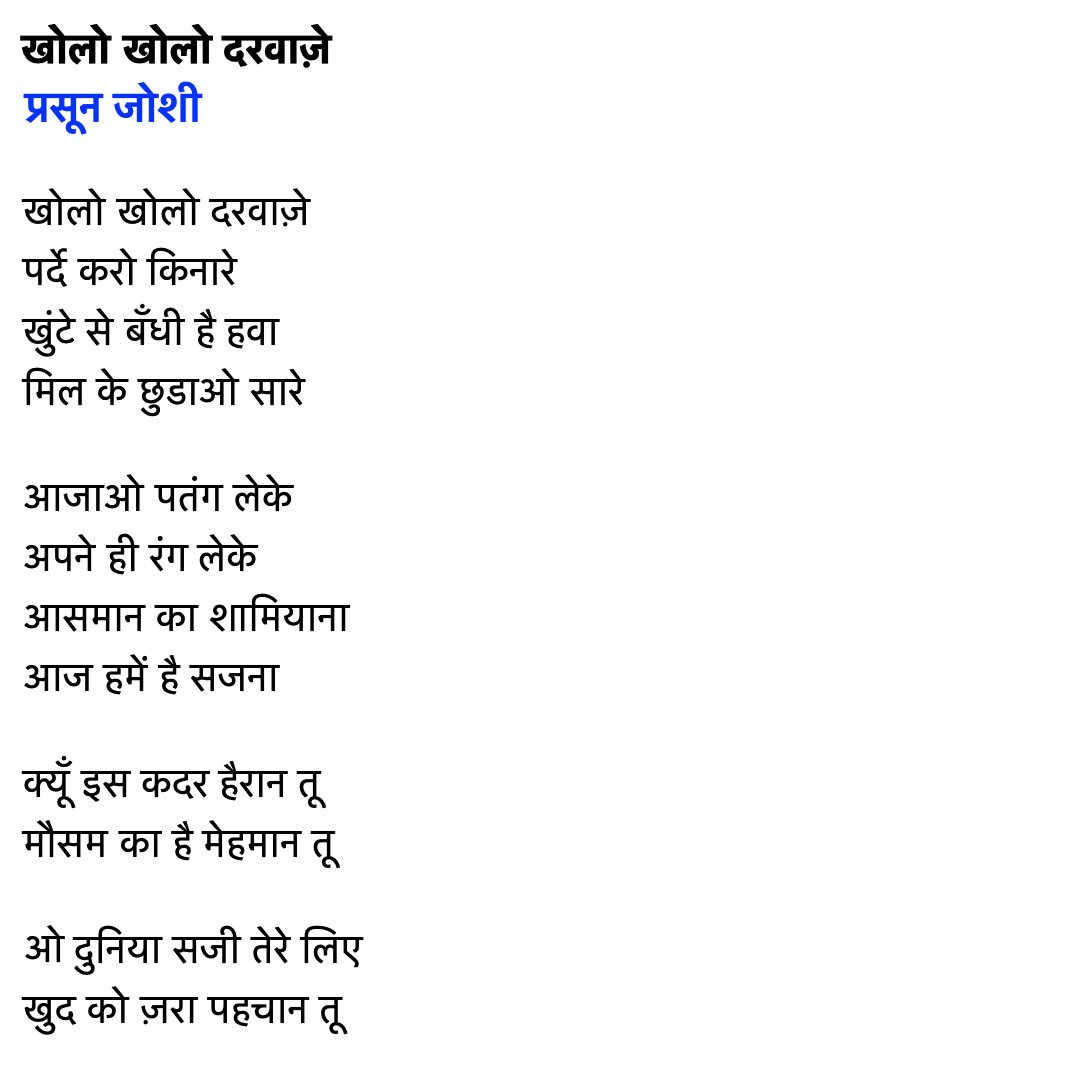 खोलो खोलो दरवाज़े
प्रसून जोशी
खोलो खोलो दरवाज़े
पर्दे करो किनारे
खुंटे से बँधी है हवा
मिल के छुडाओ सारे
आजाओ पतंग लेके
अपने ही रंग लेके
आसमान का शामियाना
आज हमें है सजना
क्यूँ इस कदर हैरान तू
मौसम का है मेहमान तू
ओ दुनिया सजी तेरे लिए
खुद को ज़रा पहचान तू